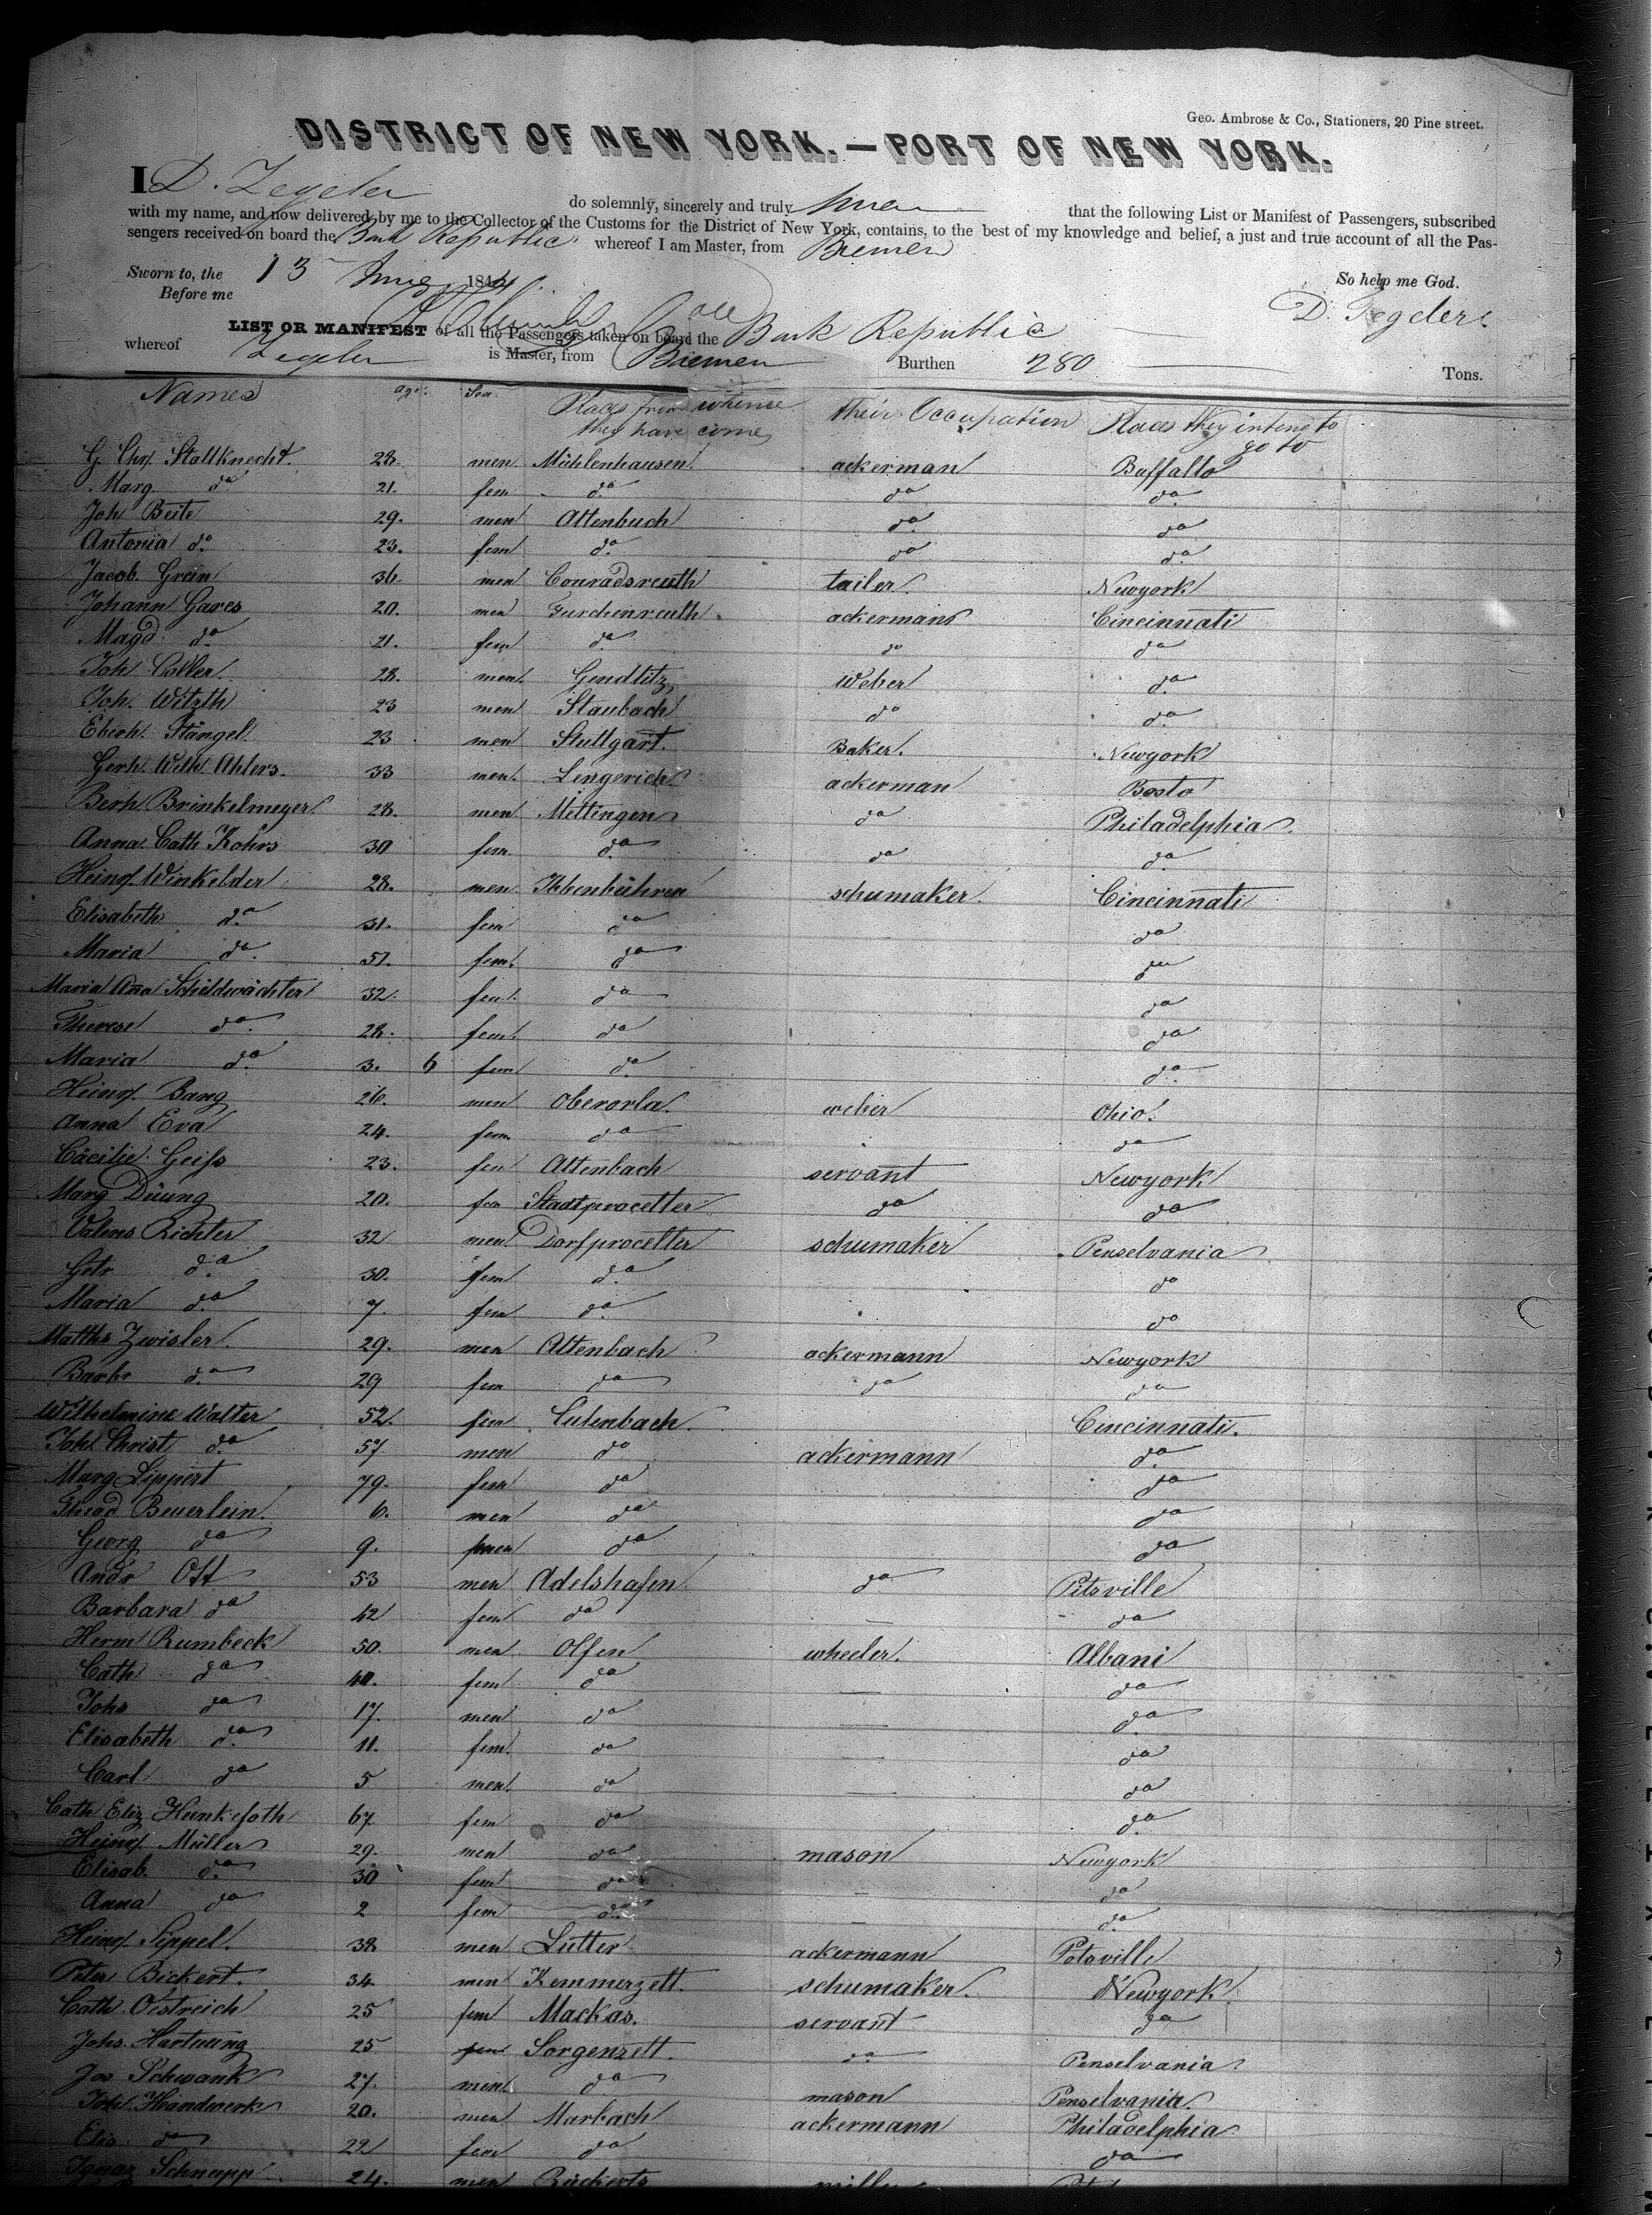 Geo. Ambrose & Co., Stationers, 20 Pine street.
DISTRICT OF NEW YORK.—PORT OF NEW YORK.
I D. Zegeler do solemnly, sincerely and truly that the following List or Manifest of Passengers, subscribed
with my name, and now delivered by me to the Collector of the Customs for the District of New York, contains, to the best of my knowledge and belief, a just and true account of all the Pas-
sengers received on board the Bark Republic whereof I am Master, from Bremen
Sworn to, the 13 June 1844 So help me God.
Before me D. Tegeler
LIST OR MANIFEST of all the Passengers taken on board the Bark Republic
whereof Zegeler is Master, from Bremen Burthen 280 Tons.
Names age. Sex Places from whence they have come, their Occupation Places they intend to go to
G. Chr. Stallknecht. 28. men Mühlenhausen ackerman Buffallo
Marg. do 21. fem do do do
Joh Beite 29. men Attenbuch do do
Antonia do 23. fem do do do
Jacob. Grein 36. men Conradsreuth tailer Newyork
Johann Gares 20. men Furchenreuth ackerman Cincinnati
Magd. do 21. fem do do do
Joh Coller. 28. men. Gendlitz weber do
Joh. Witzth 23 men Staubach do do
Eberh. Stängel 23 men Stuttgart. Baker. Newyork
Gerh. Wilh. Ahlers. 33 men. Lengerich ackerman Bosto
Berh Brinkelmeyer 28. men Mettingen do Philadelphia
Anna Cath Kohrs 30 fem. do do do
Heinr. Winkelder 28. men Ibbenbühren schumaker. Cincinnati
Elisabeth do 31. fem do do
Maria do. 51. fem. do do
Maria Ana Schildwächter 32. fem. do do
Therese do. 28. fem. do do
Maria do 3. 6 fem do do
Heinr. Bang 26. men Oberorla. weber Ohio.
Anna Eva 24. fem do do
Cäcilie Geiss 23. fem Attenbach servant Newyork
Marg Düung 20. fem Stadtprocetter do do
Valens Richter 32 men Dorfprocetter schumaker Penselvania
Getr do 30. fem do do
Maria do 7. fem do do
Matths Zwisler. 29. men Attenbach ackermann Newyork
Barbr do 29 fem do do do
Wilhelmine Walter 52. fem Culenbach Cincinnati.
Joh. Christ do 57 men do ackermann do
Marg Lippert 79. fem do do
Thead Beuerlein. 6. men do do
Georg do 9. men do do
Andr Ott 53 men Adelshafen do Pitsville
Barbara do 42 fem do do
Herm Rumbeck 50. men Olfen wheeler. Albani
Cath do 40. fem do — do
Johs do 17. men do — do
Elisabeth do 11. fem. do — do
Carl do 5 men. do do
Cath Eliz Hunkefoth 67. fem do do
Heinr. Müller 29. men do mason Newyork
Elisab. do 30 fem do do
Anna do 2 fem do — do
Heinr. Sippel. 38 men Lütter ackermann Potsville
Peter Bickert. 34. men Kemmerzett. schumaker. Newyork
Cath Oestreich 25 fem Mackas. servant do
Johs. Hartnung 25 fem Sorgenzett. do Penselvania
Jos Schwank 27. men do mason Penselvania
Joh. Handwerk 20. men Marbach ackermann Philadelphia
Elis do 22 fem do do
Ignaz Schnapp 24. men Rückerts